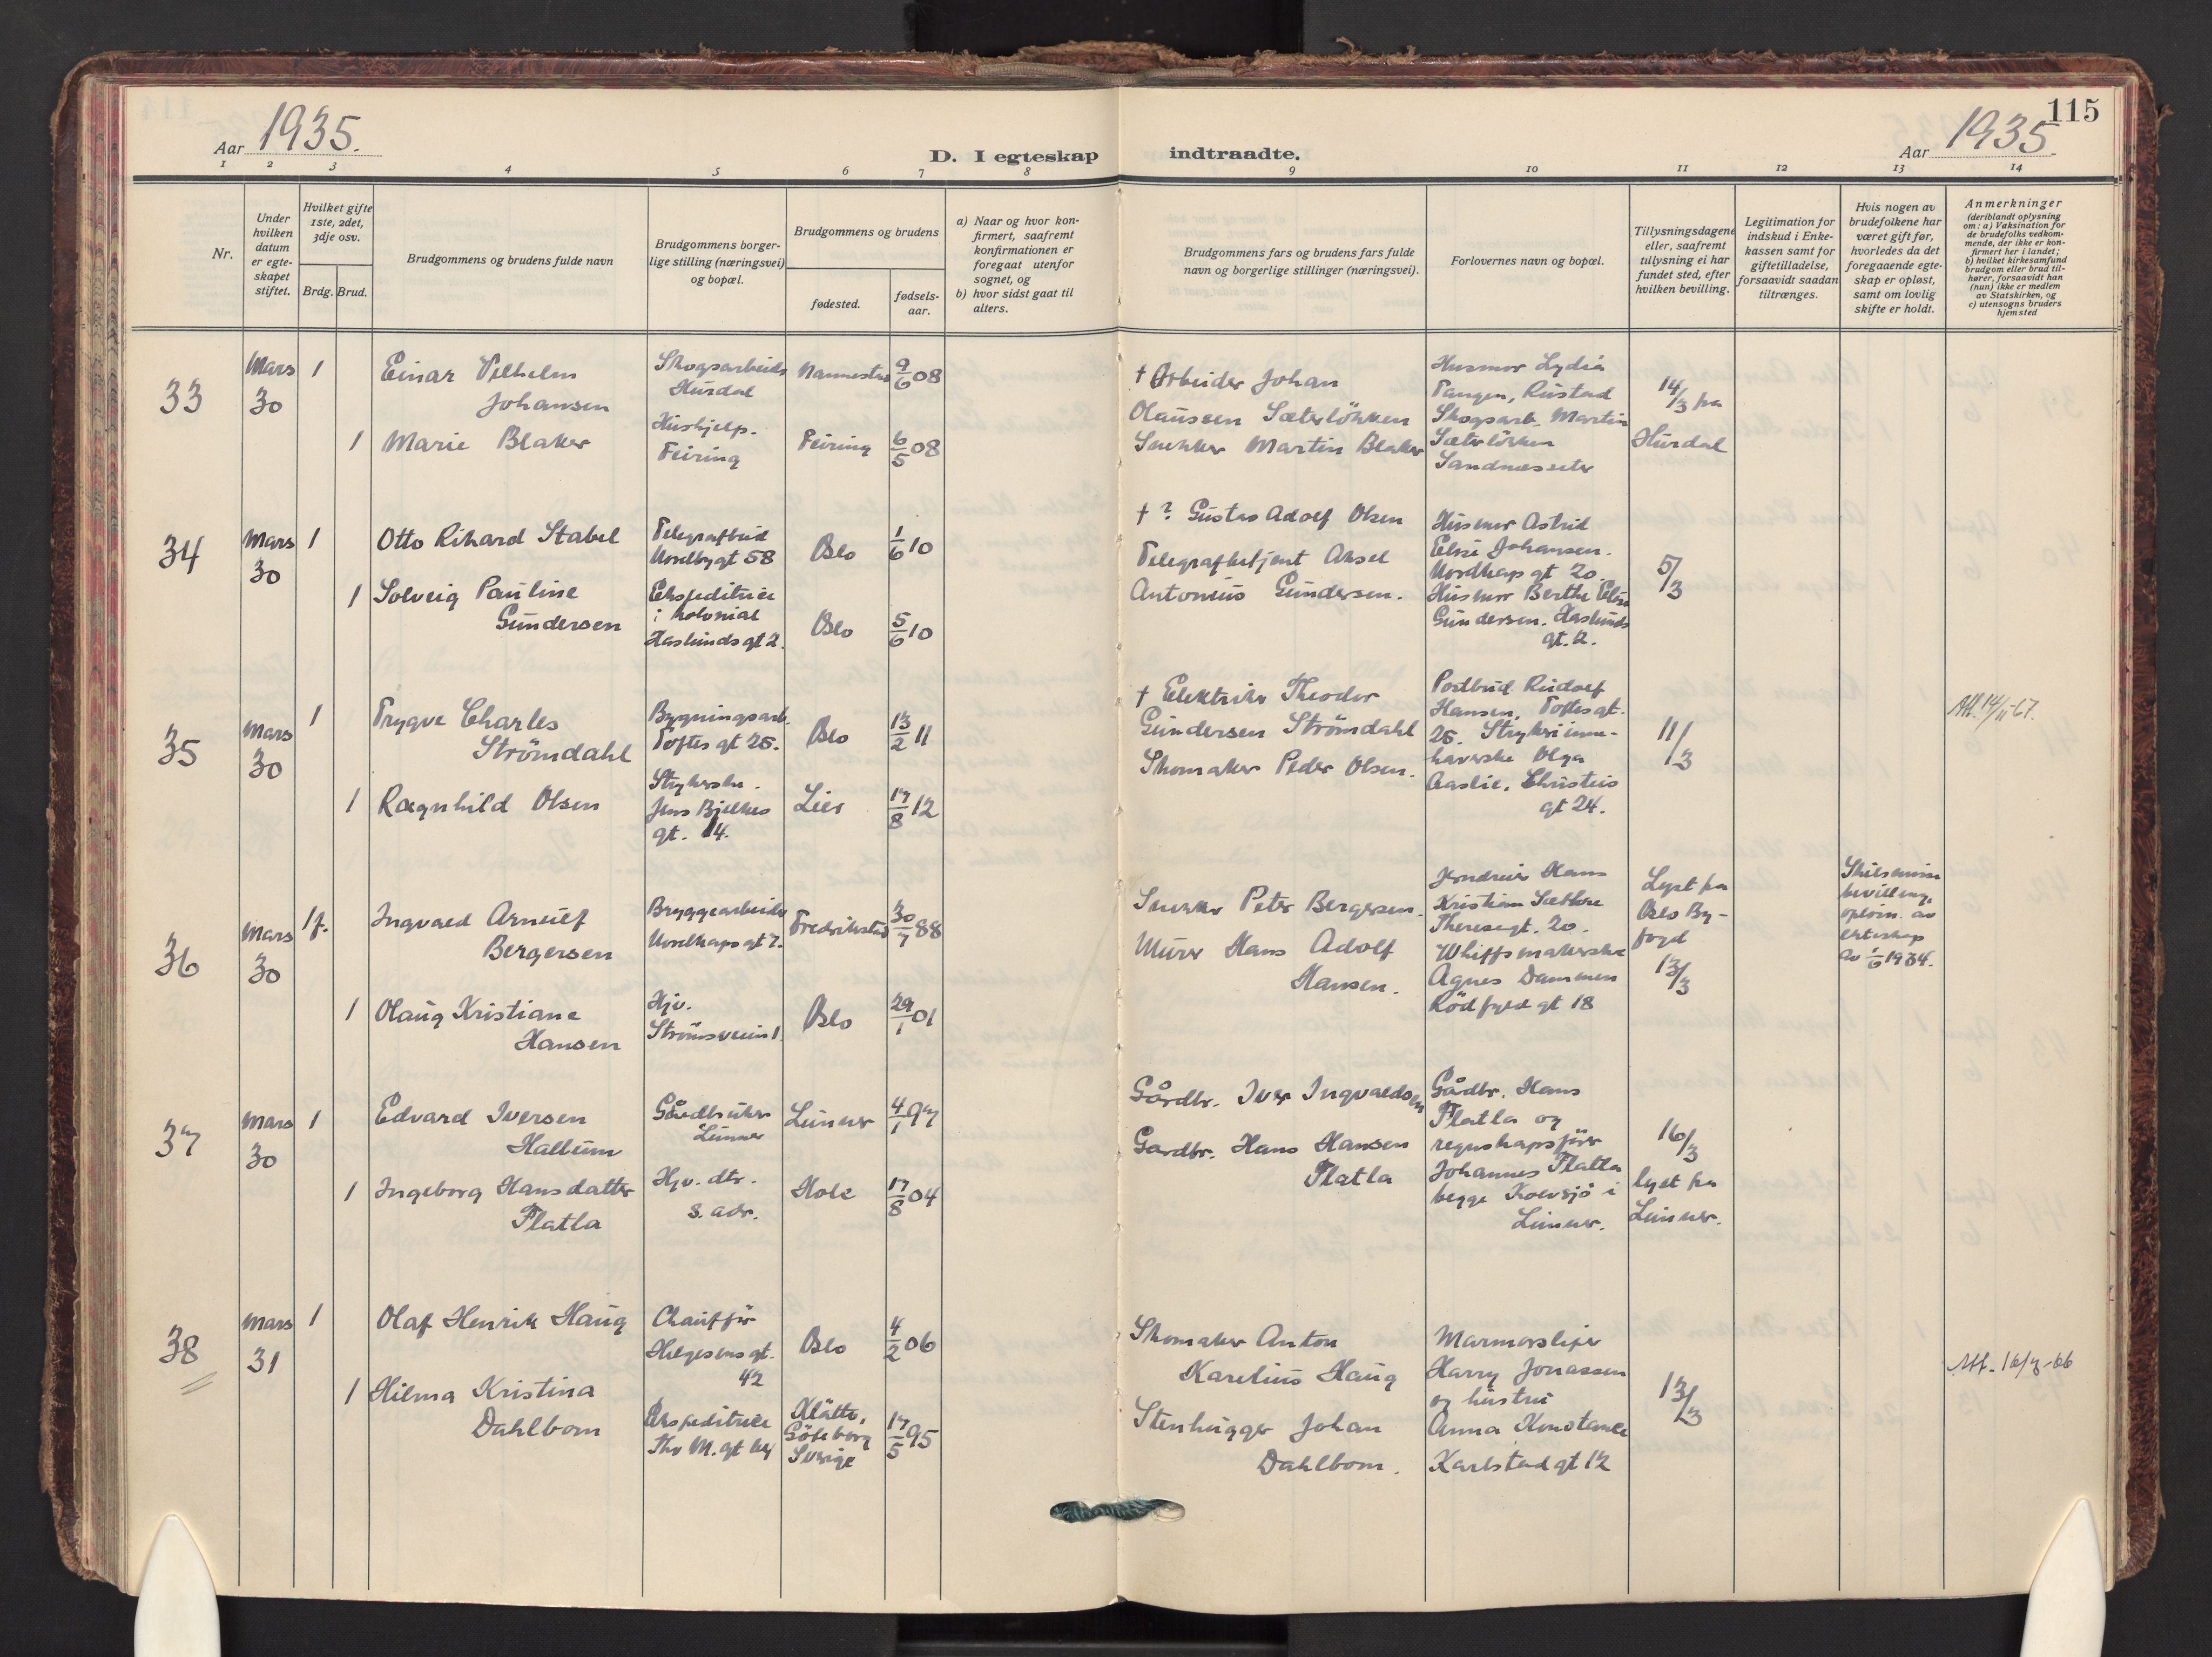 115
Aar 1935.
D. I egteskap indtraadte.
Aar 1935.
1 2 3 4 5 6 7 8 9 10 11 12 13 14
Nr.
Under
hvilken
datum
er egte-
skapet
stiftet.
Hvilket gifte
1ste, 2det,
3dje osv.
Brdg. Brud.
Brudgommens og brudens fulde navn
Brudgommens borger-
lige stilling (næringsvei)
og bopæl.
Brudgommens og brudens
fødested.
fødsels-
aar.
a) Naar og hvor kon-
firmert, saafremt
konfirmationen er
foregaat utenfor
sognet, og
b) hvor sidst gaat til
alters.
Brudgommens fars og brudens fars fulde
navn og borgerlige stillinger (næringsvei).
Forlovernes navn og bopæl.
Tillysningsdagene
eller, saafremt
tillysning ei har
fundet sted, efter
hvilken bevilling.
Legitimation for
indskud i Enke-
kassen samt for
giftetilladelse,
forsaavidt saadan
tiltrænges.
Hvis nogen av
brudefolkene har
været gift før,
hvorledes da det
foregaaende egte-
skap er opløst,
samt om lovlig
skifte er holdt.
Anmerkninger
(deriblandt oplysning
om: a) Vaksination for
de brudefolks vedkom-
mende, der ikke er kon-
firmert her i landet;
b) hvilket kirkesamfund
brudgom eller brud til-
hører, forsaavidt han
(hun) ikke er medlem
av Statskirken, og
c) utensogns bruders
hjemsted
33
Mars
30
1
Einar Vilhelm
Johansen
Skogsarbeider
Hurdal
Nannestad
9/6 08
1
Marie Blaker
Hushjelp.
Feiring
Feiring
6/5 08
† Arbeider Johan
Olaussen Sæterlökken
Snekker Martin Blaker
Husmor Lydia
Tangen, Rustad
Skogsarb. Martin
Sæterlökken
Sandnesseter
14/3 fra
Hurdal
34
Mars
30
1
Otto Rikard Stabel
Telegrafbud
Nordbygt 58
Oslo
1/6 10
1
Solveig Pauline
Gundersen
Ekspeditrice
i kolonial
Haslunds gt 2.
Oslo
5/6 10
† ? Gustav Adolf Olsen
Telegrafbetjent Aksel
Antonius Gundersen.
Husmor Astrid
Elsie Johansen.
Nordkap gt 20.
Husmor Berthe Elise
Gundersen. Haslunds
gt. 2.
5/3
35
Mars
30
1
Trygve Charles
Strömdahl
Bygningsarb.
Toftes gt 25.
Oslo
13/2 11
1
Ragnhild Olsen
Strykerske.
Jens Bjelkes
gt. 14.
Lier
17/8 12
† Elektriker Theodor
Gundersen Strömdahl
Skomaker Peder Olsen.
Postbud Rudolf
Hansen, Toftesgt.
25. Strykeriinne-
haverske Olga
Aaslie, Christies
gt 24.
11/3
Att. 14/11-67.
36
Mars
30
1f.
Ingvald Arnulf
Bergersen
Bryggearbeider
Nordkaps gt 7.
Fredrikstad
30/7 88
1
Olaug Kristiane
Hansen
Hjv.
Strömsveien 1.
Oslo
29/1 01
Snekker Peter Bergersen.
Murer Hans Adolf
Hansen.
Hans
Kristian Sæthre
Theresesgt. 20.
Whiffsmakerske
Agnes Dammen
Rödfyld gt 18
Lyst fra
Oslo By-
fogd
13/3
Skilsmisse
bevilling,
opløsn. av
ekteskap
av 1/6 1934.
37
Mars
30
1
Edvard Iversen
Hallum
Gårdbruker
Lunner
Lunner
4/1 97
1
Ingeborg Hansdatter
Flatla
Hjv. dtr.
s. adr.
Hole
17/8 04
Gårdbr. Iver Ingvaldsen
Gardbr. Hans Hansen
Flatla
Gårdbr. Hans
Flatla og
regnskapsförer
Johannes Flatla
begge Kolvsjö i
Lunner.
16/3
lyst fra
Lunner.
38
Mars
31
1
Olaf Henrik Haug
Chaufför
Helgesens gt.
42
Oslo
4/2 06
1
Hilma Kristina
Dahlbom
Ekspeditrice
Thv M. gt
Klätte,
Göteborg
Sverige
17/5 95
Skomaker Anton
Karelius Haug
Stenhugger Johan
Dahlbom.
Marmorsliper
Harry Jonassen
og hustru
Anna Konstance
Karlstad gt 12
13/3
Att. 16/3-66